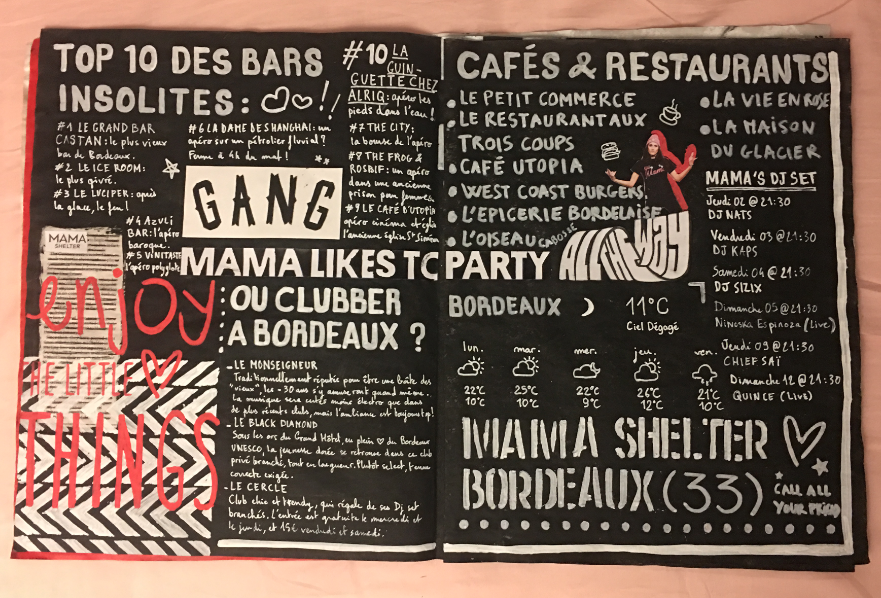 TOP 10 DES BARS
INSOLITES : !!
#1 LE GRAND BAR
CASTAN : le plus vieux
bar de Bordeaux.
#2 LE ICE ROOM :
le plus givré.
#3 LE LUCIFER : après
la glace, le feu !
#4 AZULI
BAR : l'apéro
baroque.
#5 VINITASTE
l'apéro polyglote
#6 LA DAME DE SHANGHAI : un
apéro sur un pétrolier fluvial ?
Ferme à 6h du mat !
GANG
#10 LA
GUIN-
GUETTE CHEZ
ALRIQ : apéro les
pieds dans l'eau !
#7 THE CITY :
la bourse de l'apéro
#8 THE FROG &
ROSBIF : un apéro
dans une ancienne
prison pour femmes
#9 LE CAFÉ D'UTOPIA
apéro cinéma et église
l'ancienne église St Siméon
MAMA
SHELTER
enjoy
THE LITTLE
THINGS
MAMA LIKES TO PARTY
OU CLUBBER
A BORDEAUX ?
- LE MONSEIGNEUR
Traditionnellement réputée pour être une boîte des
"vieux", les -30 ans s'y amuseront quand même.
La musique sera certes moins électro que dans
de plus récents clubs, mais l'ambiance est toujours top !
- LE BLACK DIAMOND
Sous les arc du Grand Hôtel, en plein ♡ du Bordeaux
UNESCO, la jeunesse dorée se retrouve dans ce club
privé branché, tout en longueur. Plutôt select, tenue
correcte exigée.
- LE CERCLE
Club chic et trendy, qui régale de ses Dj set
branchés. L'entrée est gratuite le mercredi et
le jeudi, et 15€ vendredi et samedi.
CAFÉS & RESTAURANTS
• LE PETIT COMMERCE
• LE RESTAURANT AUX
TROIS COUPS
• CAFÉ UTOPIA
• WEST COAST BURGERS
• L'EPICERIE BORDELAISE
• L'OISEAU CABOSSE
• LA VIE EN ROSE
• LA MAISON
DU GLACIER
ALL THE WAY
MAMA'S DJ SET
Jeudi 02 @ 21:30
DJ NATS
Vendredi 03 @ 21:30
DJ KAPS
Samedi 04 @ 21:30
DJ SIZIX
Dimanche 05 @ 21:30
Ninoska Espinoza (Live)
Jeudi 09 @ 21:30
CHIEF SAÏ
Dimanche 12 @ 21:30
QUINCE (Live)
BORDEAUX 11°C
Ciel Dégagé
lun. mar. mer. jeu. ven.
22°C 25°C 22°C 26°C 21°C
10°C 10°C 9°C 12°C 10°C
MAMA SHELTER
BORDEAUX (33)
CALL ALL
YOUR